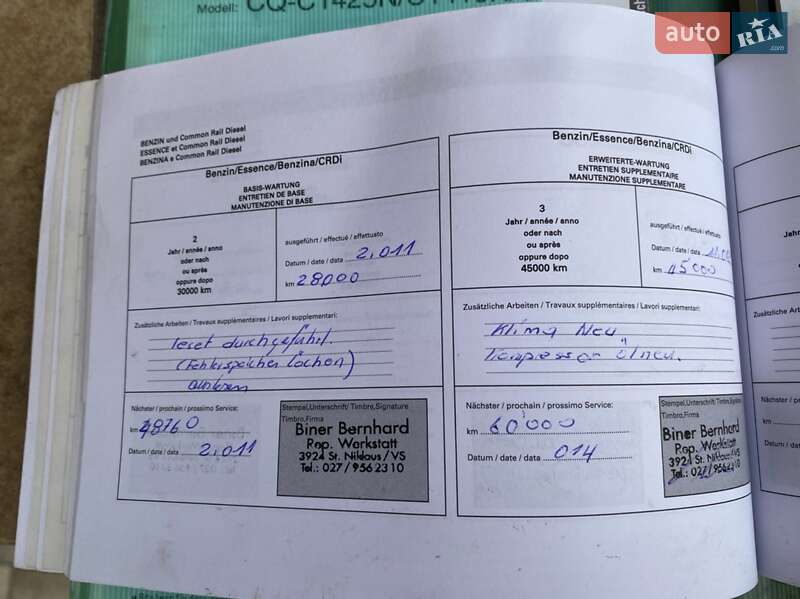 Modell: CQ-C1425N/C
auto RIA .com
BENZIN und Common Rail Diesel
ESSENCE et Common Rail Diesel
BENZINA e Common Rail Diesel
Benzin/Essence/Benzina/CRDi
BASIS-WARTUNG
ENTRETIEN DE BASE
MANUTENZIONE DI BASE
2
Jahr / année / anno
oder nach
ou après
oppure dopo
30000 km
ausgeführt / effectué / effettuato
Datum / date / data 2.011
km 28000
Zusätzliche Arbeiten / Travaux supplémentaires / Lavori supplementari:
Teset durchgeführt.
(Fehlerspeicher Löschen)
Nächster / prochain / prossimo Service:
km 48160
Datum / date / data 2.011
Stempel,Unterschrift/ Timbro,Signature
Timbro,Firma
Biner Bernhard
Rep. Werkstatt
3924 St. Niklaus/VS
Tel.: 027/956 23 10
Benzin/Essence/Benzina/CRDi
ERWEITERTE-WARTUNG
ENTRETIEN SUPPLEMENTAIRE
MANUTENZIONE SUPPLEMENTARE
3
Jahr / année / anno
oder nach
ou après
oppure dopo
45000 km
ausgeführt / effectué / effettuato
Datum / date / data
km 45000
Zusätzliche Arbeiten / Travaux supplémentaires / Lavori supplementari:
Klima Neu
Kompressor öl neu.
Nächster / prochain / prossimo Service:
km 60'000
Datum / date / data 014
Stempel, Unterschrift/Timbre,Signature
Timbro,Firma
Biner Bernhard
Rep. Werkstatt
3924 St. Niklaus/VS
Tel.: 027/956 23 10